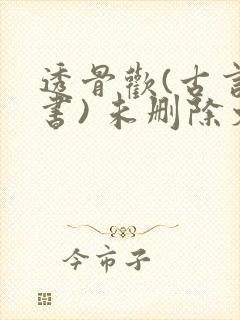 透骨歡(古言
書)未删除
今市子